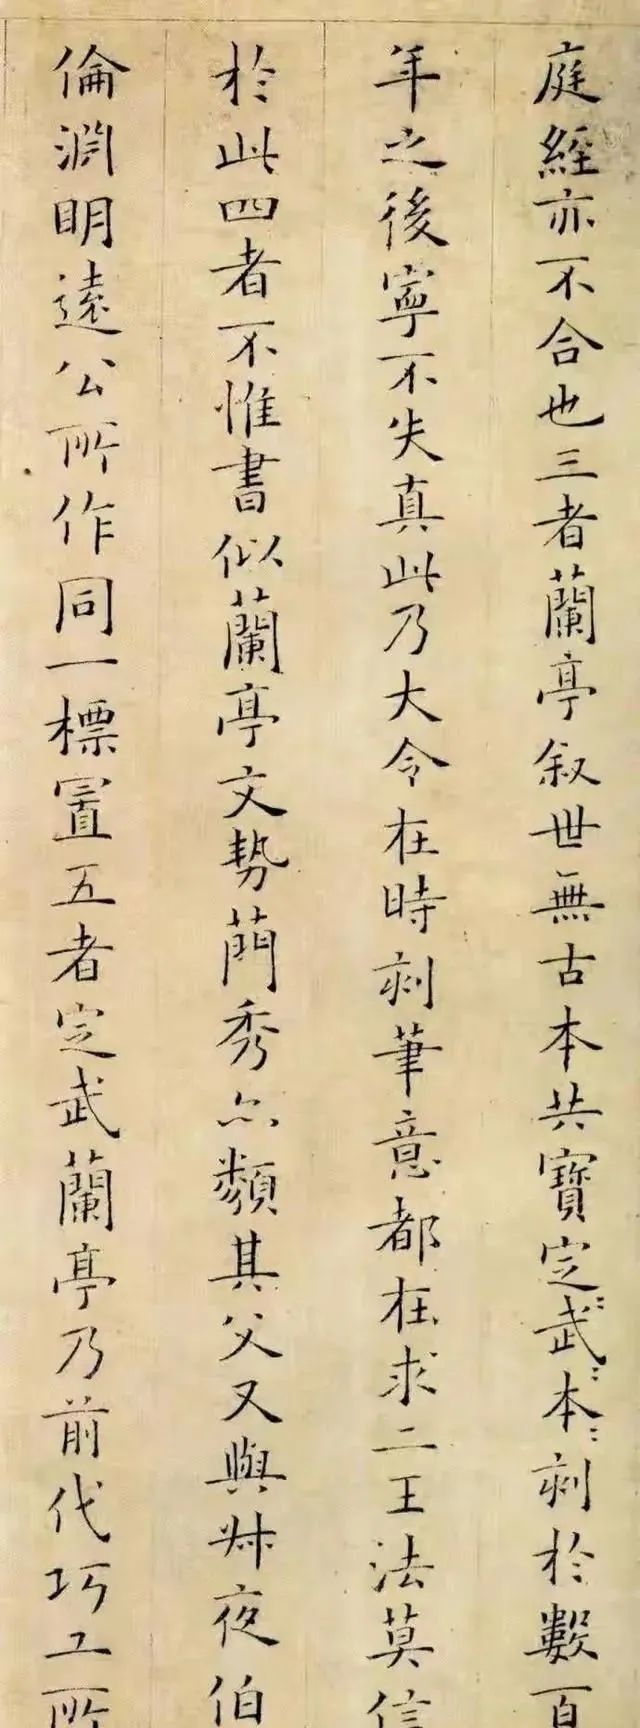 庭經亦不合也三者蘭亭叙世無古本共寶定〻武〻本〻刻於數百
年之後寧不失真此乃大令在時刻筆意都在求二王法莫信
於此四者不惟書似蘭亭文勢簡秀亦類其父又與叔夜伯
倫淵明遠公所作同一標置五者定武蘭亭乃前代巧工所